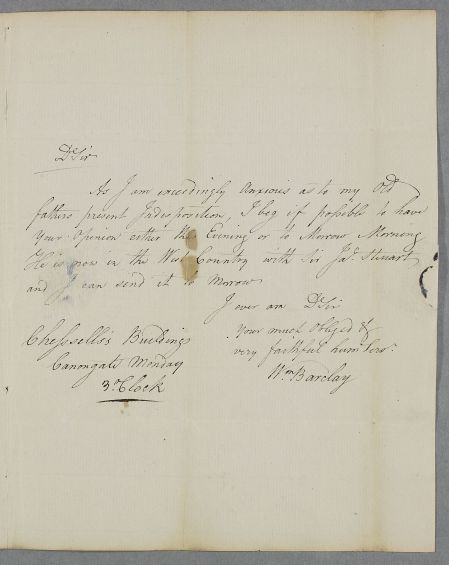 Dr Sir
As I am exceedingly Anxious as to my Old
fathers present Indisposition, I beg if possible to have
your Opinion either this Evening or to Morrow Morning
He is now in the West Country with Sir Jas. Steuart
and I can send it to Morrow
I ever am Dr Sir
Your much Obliged &
very faithful humb Serv.
Wm Barclay
Chessells's Buildings
Canongate Monday
3 oClock